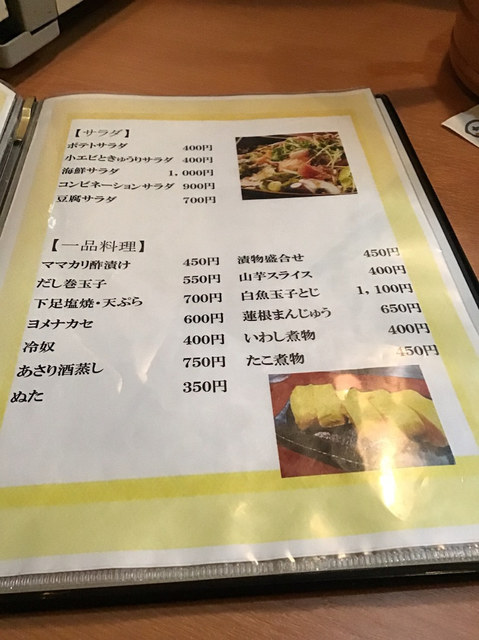 【サラダ】
ポテトサラダ 400円
小エビときゅうりサラダ 400円
海鮮サラダ 1,000円
コンビネーションサラダ 900円
豆腐サラダ 700円
【一品料理】
ママカリ酢漬け 450円
だし巻玉子 550円
下足塩焼・天ぷら 700円
ヨメナカセ 600円
冷奴 400円
あさり酒蒸し 750円
ぬた 350円
漬物盛合せ 450円
山芋スライス 400円
白魚玉子とじ 1,100円
蓮根まんじゅう 650円
いわし煮物 400円
たこ煮物 450円